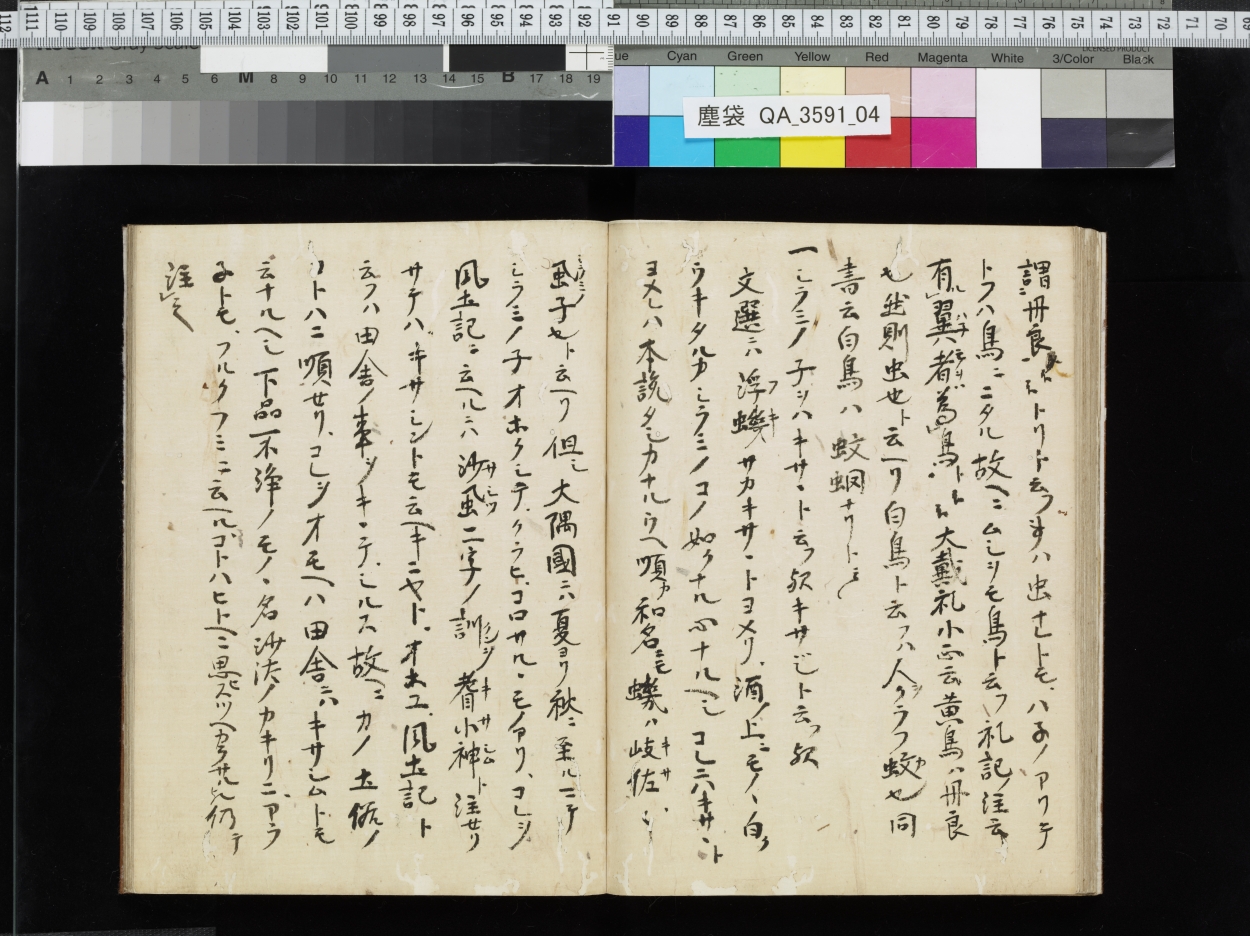 謂丹良
トフハ鳥ニニタル故ヘニムシヲモ鳥ト云フ礼記ノ注云
有翼者為鳥ト 大戴礼小正云黄鳥ハ丹良
也然則虫也ト云ヘリ白鳥ト云フハ人ヲクラフ蚊也同
書云白鳥ハ蚊蚋ナリト云々
一シラミノ子ヲハキサヽト云フ歟キサシト云フ歟
文選ニハ浮蟣サカキサヽトヨメリ酒ノ上ニモノヽ白ク
ウキタルカシラミノコノ如クナル心ナルヘシコレニハキサヽト
ヨメレハ本説タシカナルウヘ順カ和名ニモ蟣ハ岐佐々
虱子也ト云ヘリ但シ大隅國ニハ夏ヨリ秋ニ至ルマテ
シラミノ子オホクシテクラヒコロサルヽモノアリコレヲ
風土記ニ云ヘルニハ沙虱二字ノ訓 耆小神ト注セリ
サテハキサシントモ云ヘキニヤトオホユ風土記ト
云フハ田舎ノ事ヲキヽテシルス故ヘニカノ土俗ノ
コトハニ順セリコレヲオモヘハ田舎ニハキサシムトモ
云ナルヘシ下品不浄ノモノヽ名沙汰ノカキリニアラ
子トモフルクフミニ云ヘルコトハヒトヘニ思ヒスツヘカラサル
注之
塵袋 QA_3591_04
A 1 2 3 4 5 6 M 8 9 10 11 12 13 14 15 B 17 18 19
Cyan Green Yellow Red Magenta White 3/Color Black